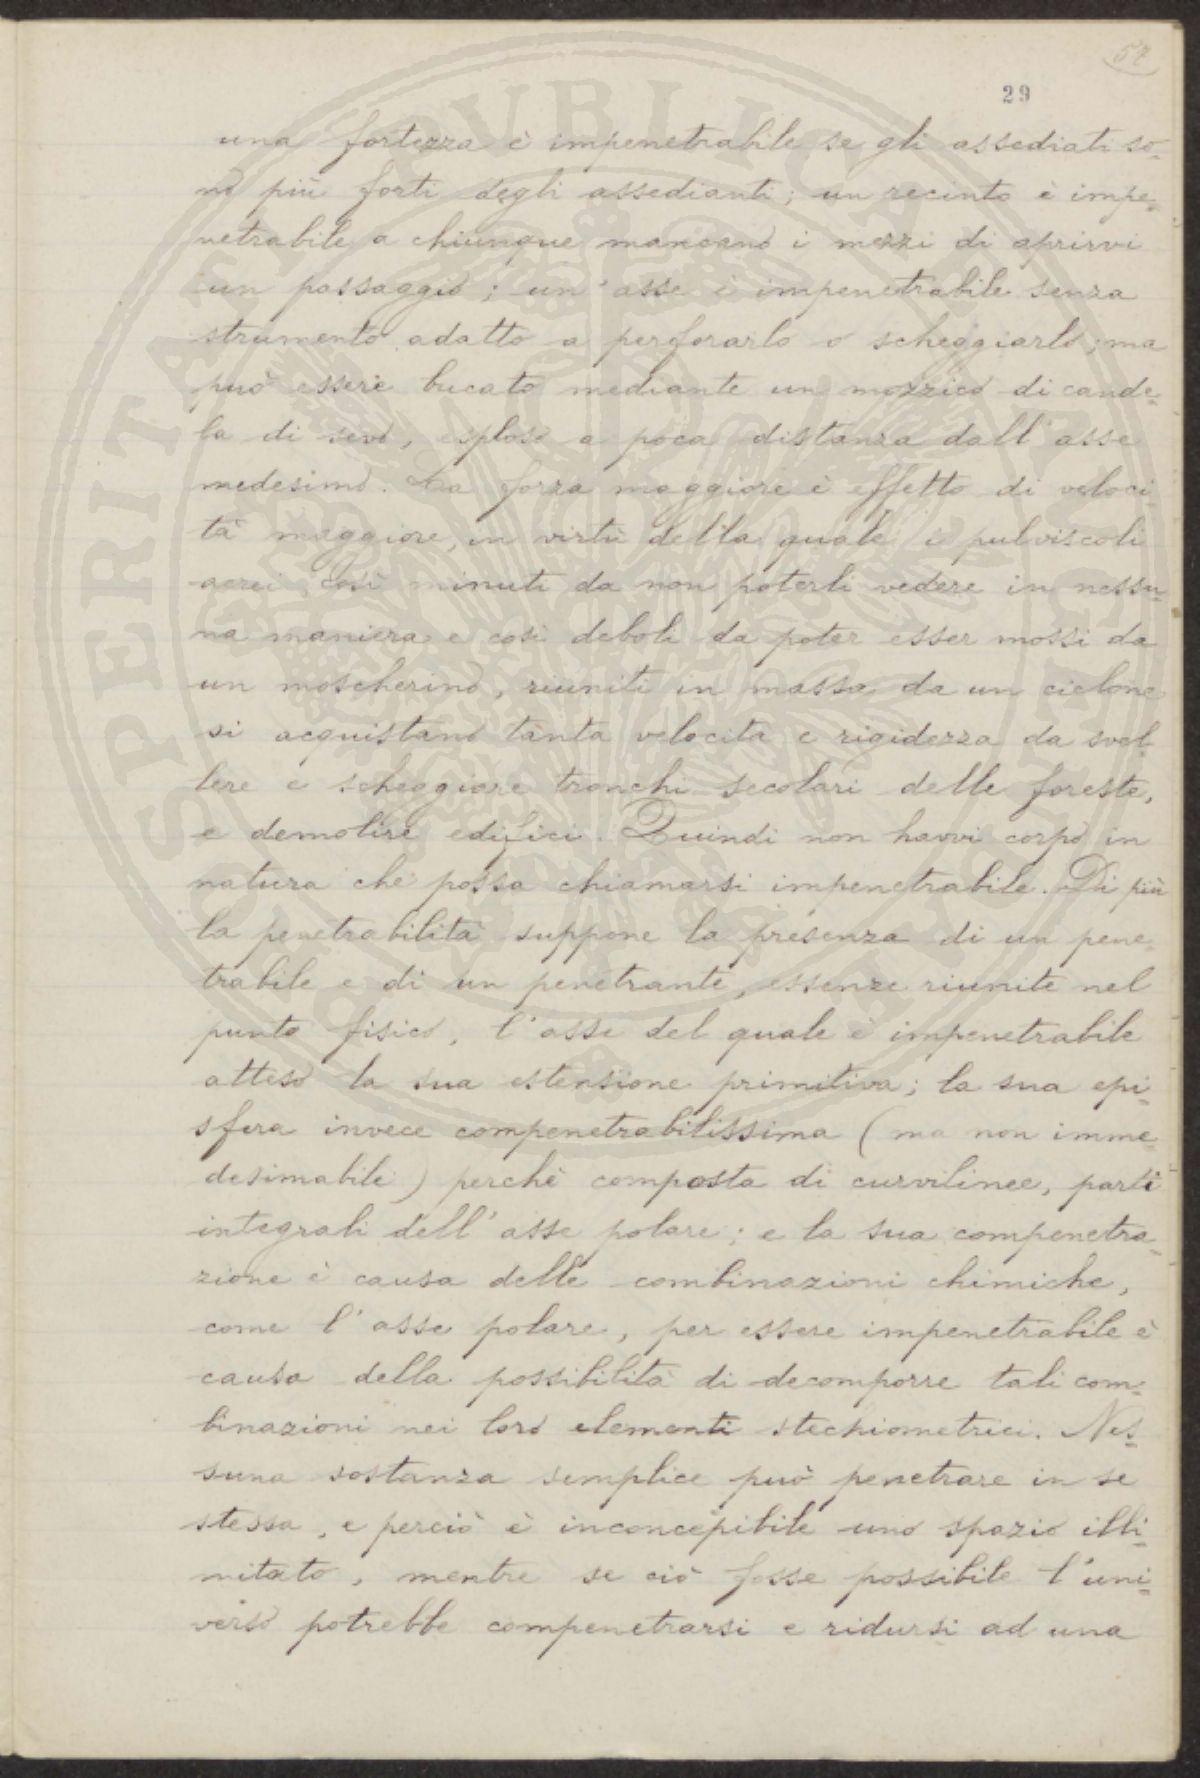 57
29
una fortezza è impenetrabile se gli assediati so-
no più forti degli assedianti; un recinto è impe-
netrabile a chiunque mancano i mezzi di aprirvi
un passaggio; un'asse è impenetrabile senza
strumento adatto a perforarlo o scheggiarlo; ma
può essere bucato mediante un mozzico di cande-
la di sevo, esploso a poca distanza dall'asse
medesimo. La forza maggiore è effetto di veloci-
tà maggiore, in virtù della quale i pulviscoli
aerei così minuti da non poterli vedere in nessu-
na maniera e così deboli da poter esser mossi da
un moscherino, riuniti in massa da un ciclone
si acquistano tanta velocità e rigidezza da svel-
lere e scheggiare tronchi secolari delle foreste,
e demolire edifici. Quindi non havvi corpo in
natura che possa chiamarsi impenetrabile. Di più
la penetrabilità suppone la presenza di un pene-
trabile e di un penetrante, essenze riunite nel
punto fisico, l'asse del quale è impenetrabile
atteso la sua estensione primitiva; la sua epi-
sfera invece compenetrabilissima (ma non imme-
desimabile) perchè composta di curvilinee, parti
integrali dell'asse polare; e la sua compenetra-
zione è causa delle combinazioni chimiche,
come l'asse polare, per essere impenetrabile è
causa della possibilità di decomporre tali com-
binazioni nei loro elementi stechiometrici. Nes-
suna sostanza semplice può penetrare in se
stessa, e perciò è inconcepibile uno spazio illi-
mitato, mentre se ciò fosse possibile l'uni-
verso potrebbe compenetrarsi e ridursi ad una